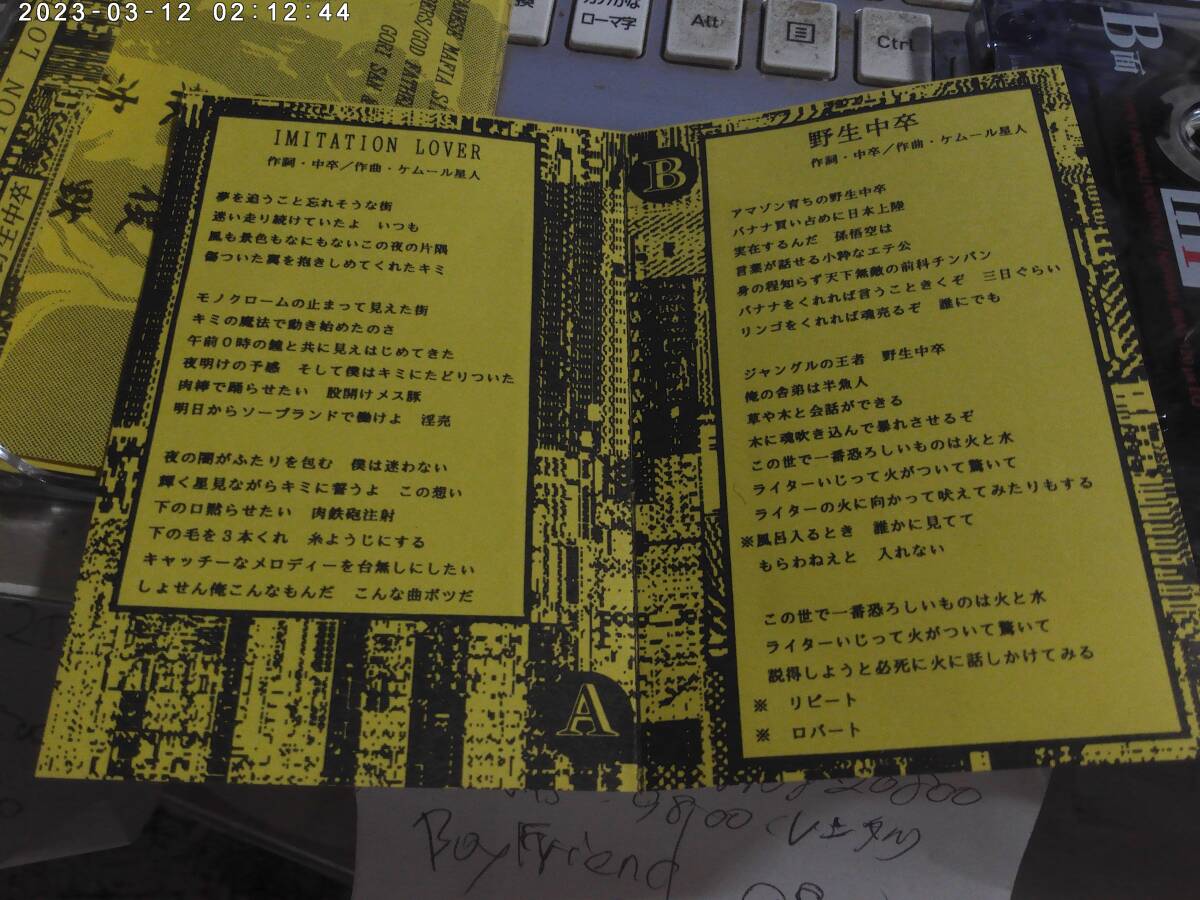 2023-03-12 02:12:44
カタカナ
ローマ字
Alt
Ctrl
B面
IMITATION LOVER
作詞・中卒／作曲・ケムール星人
夢を追うこと忘れそうな街
迷い走り続けていたよ　いつも
風も景色もなにもないこの夜の片隅
傷ついた翼を抱きしめてくれたキミ
モノクロームの止まって見えた街
キミの魔法で動き始めたのさ
午前０時の鐘と共に見えはじめてきた
夜明けの予感　そして僕はキミにたどりついた
肉棒で踊らせたい　股開けメス豚
明日からソープランドで働けよ　淫売
夜の闇がふたりを包む　僕は迷わない
輝く星見ながらキミに誓うよ　この想い
下の口黙らせたい　肉鉄砲注射
下の毛を３本くれ　糸ようじにする
キャッチーなメロディーを台無しにしたい
しょせん俺こんなもんだ　こんな曲ボツだ
A
B
野生中卒
作詞・中卒／作曲・ケムール星人
アマゾン育ちの野生中卒
バナナ買い占めに日本上陸
実在するんだ　孫悟空は
言葉が話せる小粋なエテ公
身の程知らず天下無敵の前科チンパン
バナナをくれれば言うこときくぞ　三日ぐらい
リンゴをくれれば魂売るぞ　誰にでも
ジャングルの王者　野生中卒
俺の舎弟は半魚人
草や木と会話ができる
木に魂吹き込んで暴れさせるぞ
この世で一番恐ろしいものは火と水
ライターいじって火がついて驚いて
ライターの火に向かって吠えてみたりもする
※風呂入るとき　誰かに見てて
もらわねえと　入れない
この世で一番恐ろしいものは火と水
ライターいじって火がついて驚いて
説得しようと必死に火に話しかけてみる
※　リピート
※　ロバート
9800
Boyfriend